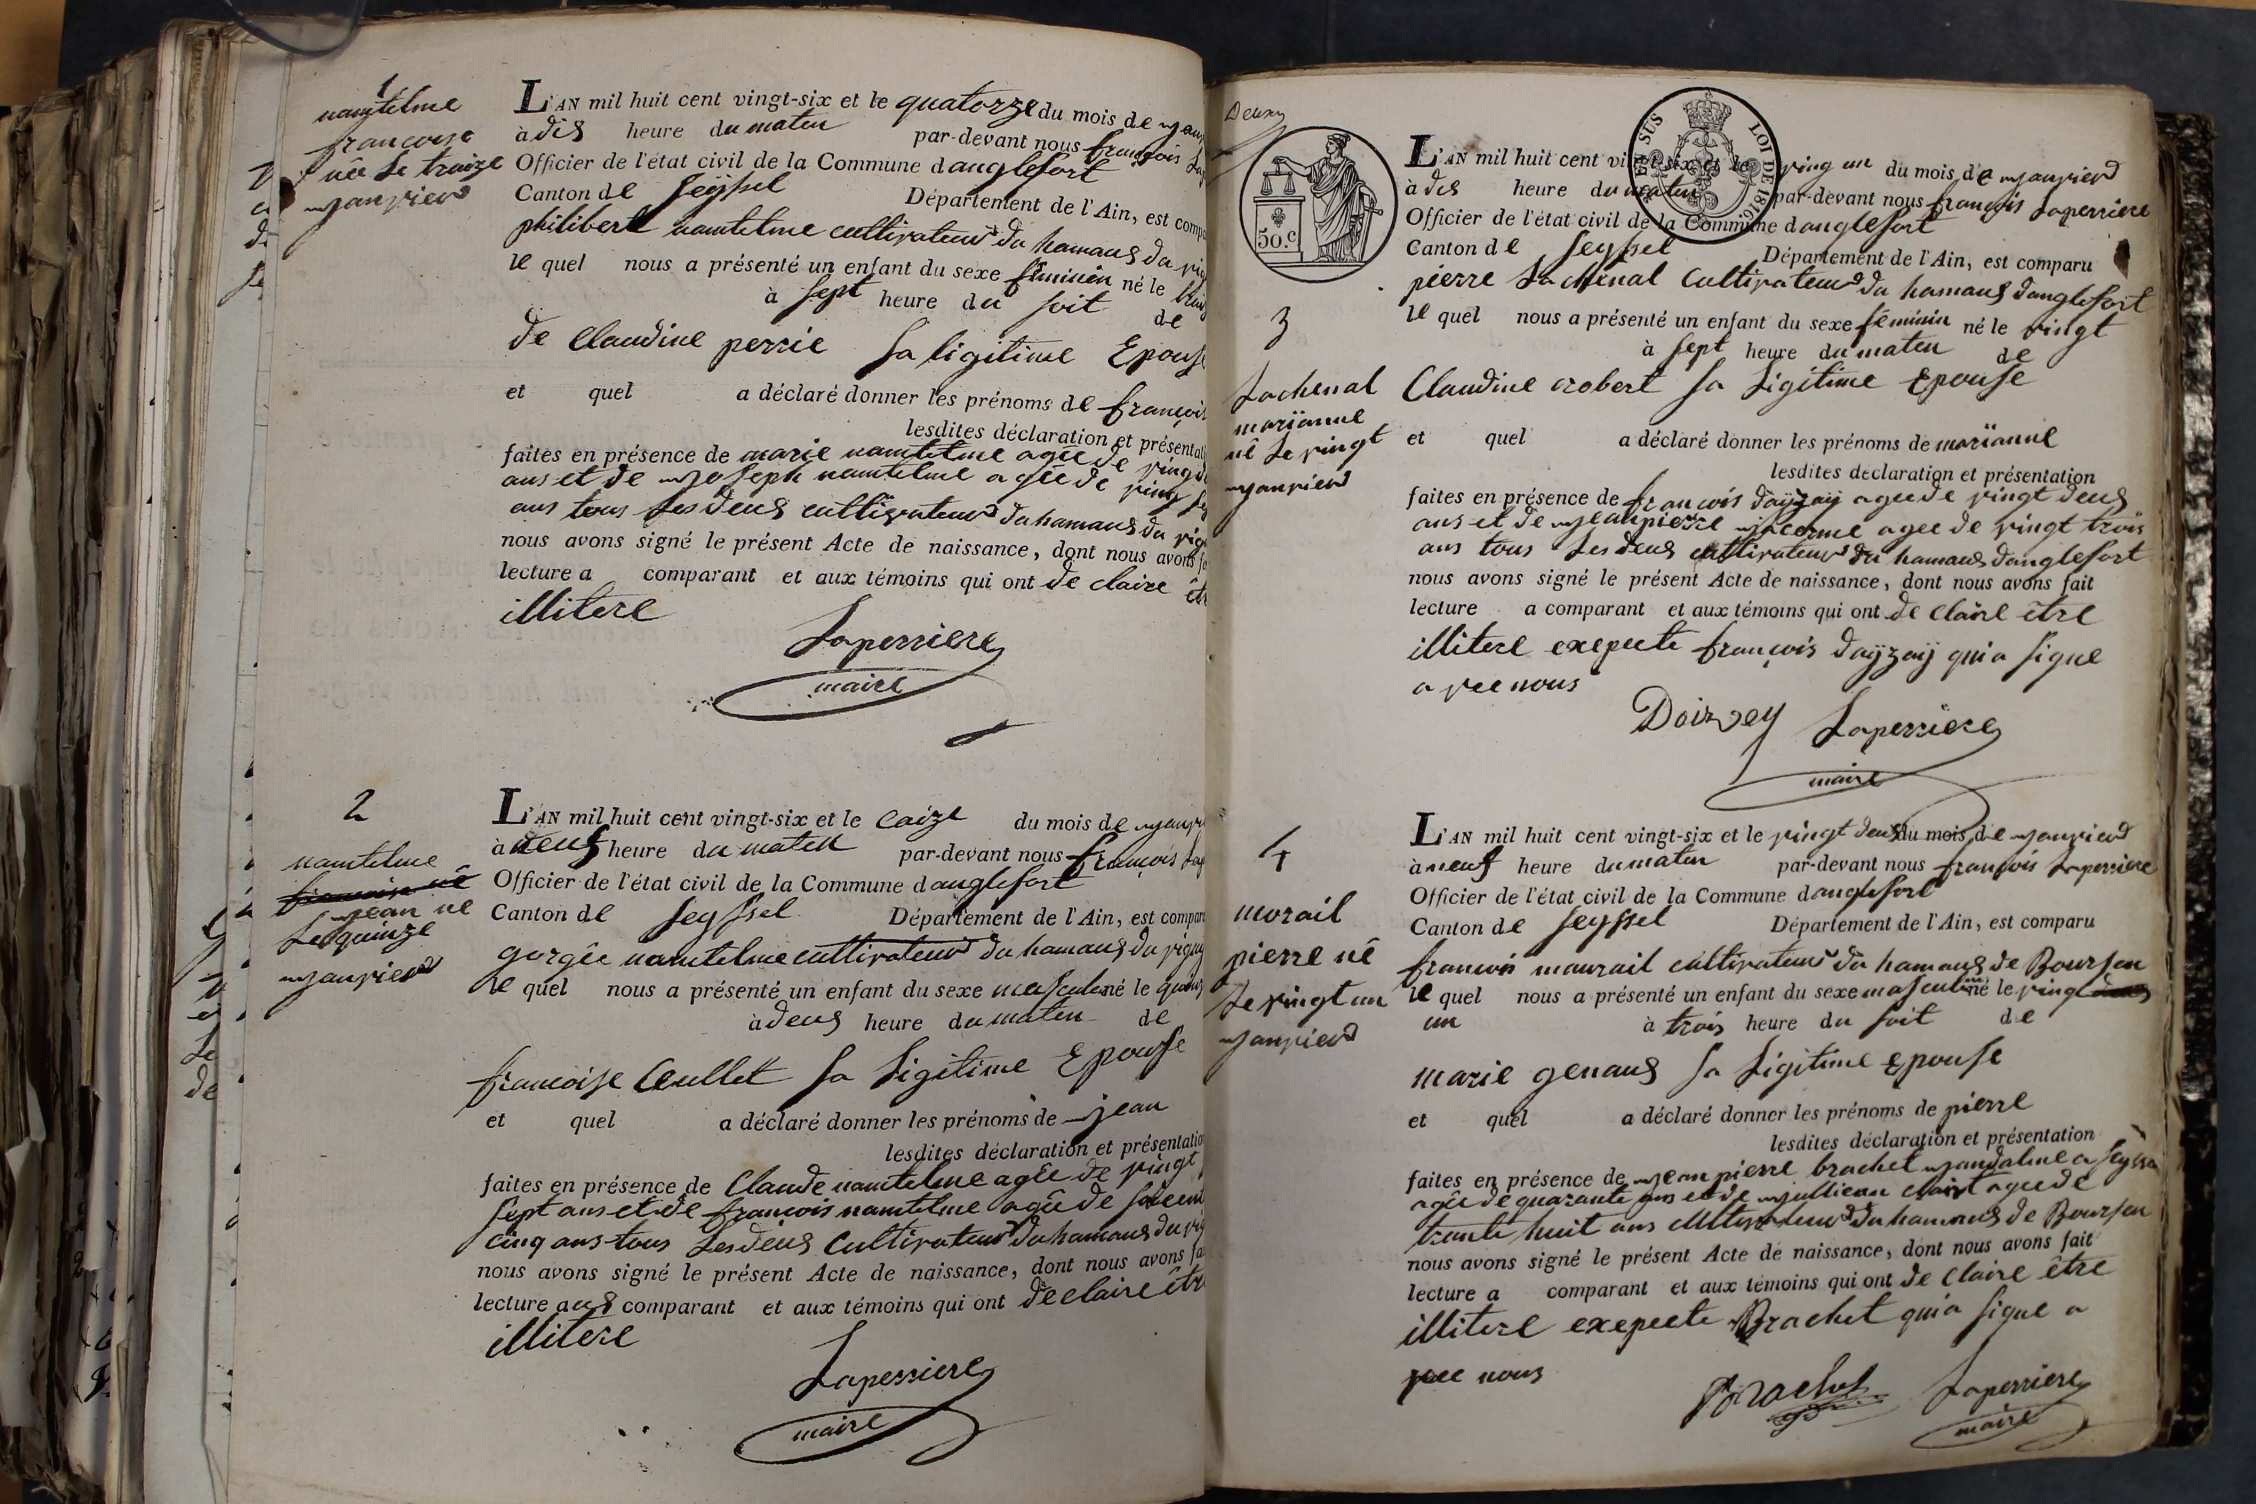 1
namtelme
francoise
née le traize
janvier
L'AN mil huit cent vingt-six et le quatorze du mois de
à dis heure du maten par-devant nous françois
Officier de l'état civil de la Commune d anglefort
Canton de Seyssel Département de l'Ain, est
philibert namtelme cultivateur du hamaus du
le quel nous a présenté un enfant du sexe féminin né le
à sept heure du soit de
de Claudine perrie sa ligitime Epouse
et quel a déclaré donner les prénoms de
lesdites déclaration et
faites en présence de marie namtelme agée de
ans et de joseph namtelme agée de
ans tous les deus cultivateur du hamaus du
nous avons signé le présent Acte de naissance, dont nous avons
lecture a comparant et aux témoins qui ont de claire
illitere
Laperriere
maire
2
namtelme
francoise né
jean né
le quinze
janvier
L'AN mil huit cent vingt-six et le caize du mois de
à neuf heure du maten par-devant nous françois
Officier de l'état civil de la Commune d anglefort
Canton de Seyssel Département de l'Ain, est
gorgée namtelme cultivateur du hamaus du
le quel nous a présenté un enfant du sexe masculin né le
à deus heure du maten de
francoise Cullet sa ligitime Epouse
et quel a déclaré donner les prénoms de jean
lesdites déclaration et
faites en présence de Claude namtelme agée de vingt
sept ans et de francois namtelme agée de
cinq ans tous les deus Cultivateur du hamaus du
nous avons signé le présent Acte de naissance, dont nous avons
lecture aus comparant et aux témoins qui ont de claire
illitere
Laperriere
maire
Deux
50.c
SUS
LOI DE 1816
3
Lachenal
marianne
né le vingt
janvier
L'AN mil huit cent vingt-six et le ving un du mois de janvier
à dis heure du maten par-devant nous françois Laperriere
Officier de l'état civil de la Commune d anglefort
Canton de Seyssel Département de l'Ain, est comparu
pierre Lachenal Cultivateur du hamaus d anglefort
le quel nous a présenté un enfant du sexe féminin né le vingt
à sept heure du maten de
Claudine crobert sa ligitime Epouse
et quel a déclaré donner les prénoms de marianne
lesdites déclaration et présentation
faites en présence de françois dayzay agée de vingt deus
ans et de jeanpierre agee de vingt trois
ans tous les deus cultivateur du hamaus d anglefort
nous avons signé le présent Acte de naissance, dont nous avons fait
lecture a comparant et aux témoins qui ont de claire être
illitere exepecte françois dayzay qui a signe
a vec nous
Doizvey Laperriere
maire
4
morail
pierre né
le vingt un
janvier
L'AN mil huit cent vingt-six et le vingt deus du mois de janvier
à neuf heure du maten par-devant nous françois Laperriere
Officier de l'état civil de la Commune d anglefort
Canton de Seyssel Département de l'Ain, est comparu
francois maurail cultivateur du hamaus de Boursen
le quel nous a présenté un enfant du sexe masculin né le vingt deus
un à trois heure du soit de
marie genaus sa ligitime epouse
et quel a déclaré donner les prénoms de pierre
lesdites déclaration et présentation
faites en présence de jean pierre brachet jandalme a
agée de quarante ans et de jullien agee de
trente huit ans cultivateur du hamaus de Boursen
nous avons signé le présent Acte de naissance, dont nous avons fait
lecture a comparant et aux témoins qui ont de claire être
illitere exepecte Brachet qui a signe a
vec nous
Brachet Laperriere
maire